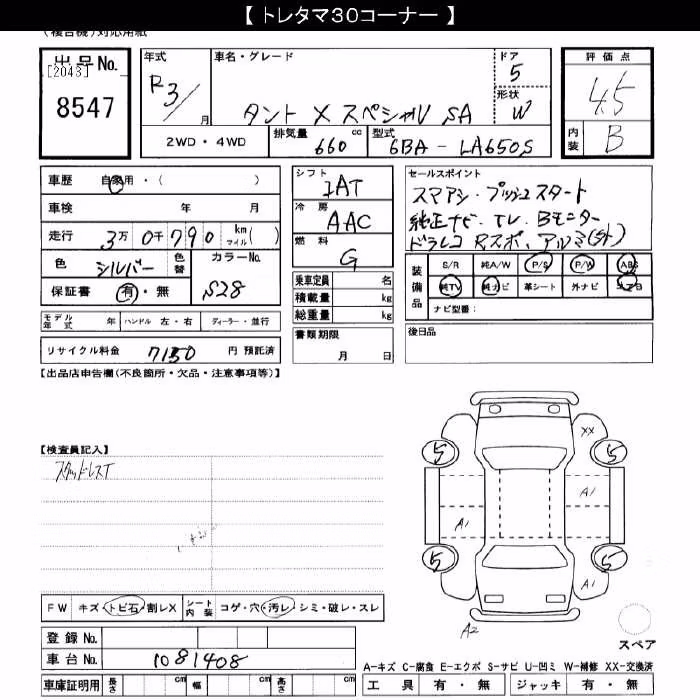 【 トレタマ30コーナー 】
(複合機)対応用紙
出品No.
[2043]
8547
年式
R3/
月
車名・グレード
タント X スペシャル SA
ドア
5
形状
W
評価点
4.5
内装
B
2WD・4WD
排気量
660
cc
型式
6BA-LA650S
車歴 自家用・( )
車検 年 月
走行 3万 0千790 km マイル( )
色 シルバー
色替
カラーNo.
S28
保証書 有・無
モデル年式 年 ハンドル 左・右 ディーラー・並行
リサイクル料金 7150 円 預託済
シフト
IAT
冷房
AAC
燃料
G
乗車定員 名
積載量 kg
総重量 kg
書類期限
月 日
セールスポイント
スマアシ・プッシュスタート
純正ナビ・TV、Bモニター
ドラレコ Rスポ、アルミ(外)
装備品
S/R 純A/W P/S P/W ABS
純TV 純ナビ 革シート 外ナビ エアB
ナビ型番:
後日品
【出品店申告欄(不良箇所・欠品・注意事項等)】
【検査員記入】
スタッドレスT
FW キズ・トビ石・割レX シート内装 コゲ・穴・汚レ・シミ・破レ・スレ
登録No.
車台No. 1081408
車庫証明用 長さ cm 幅 cm 高さ cm
XX
5
5
A1
A1
5
5
A1
A2
スペア
A-キズ C-腐食 E-エクボ S-サビ U-凹ミ W-補修 XX-交換済
工具 有・無 ジャッキ 有・無